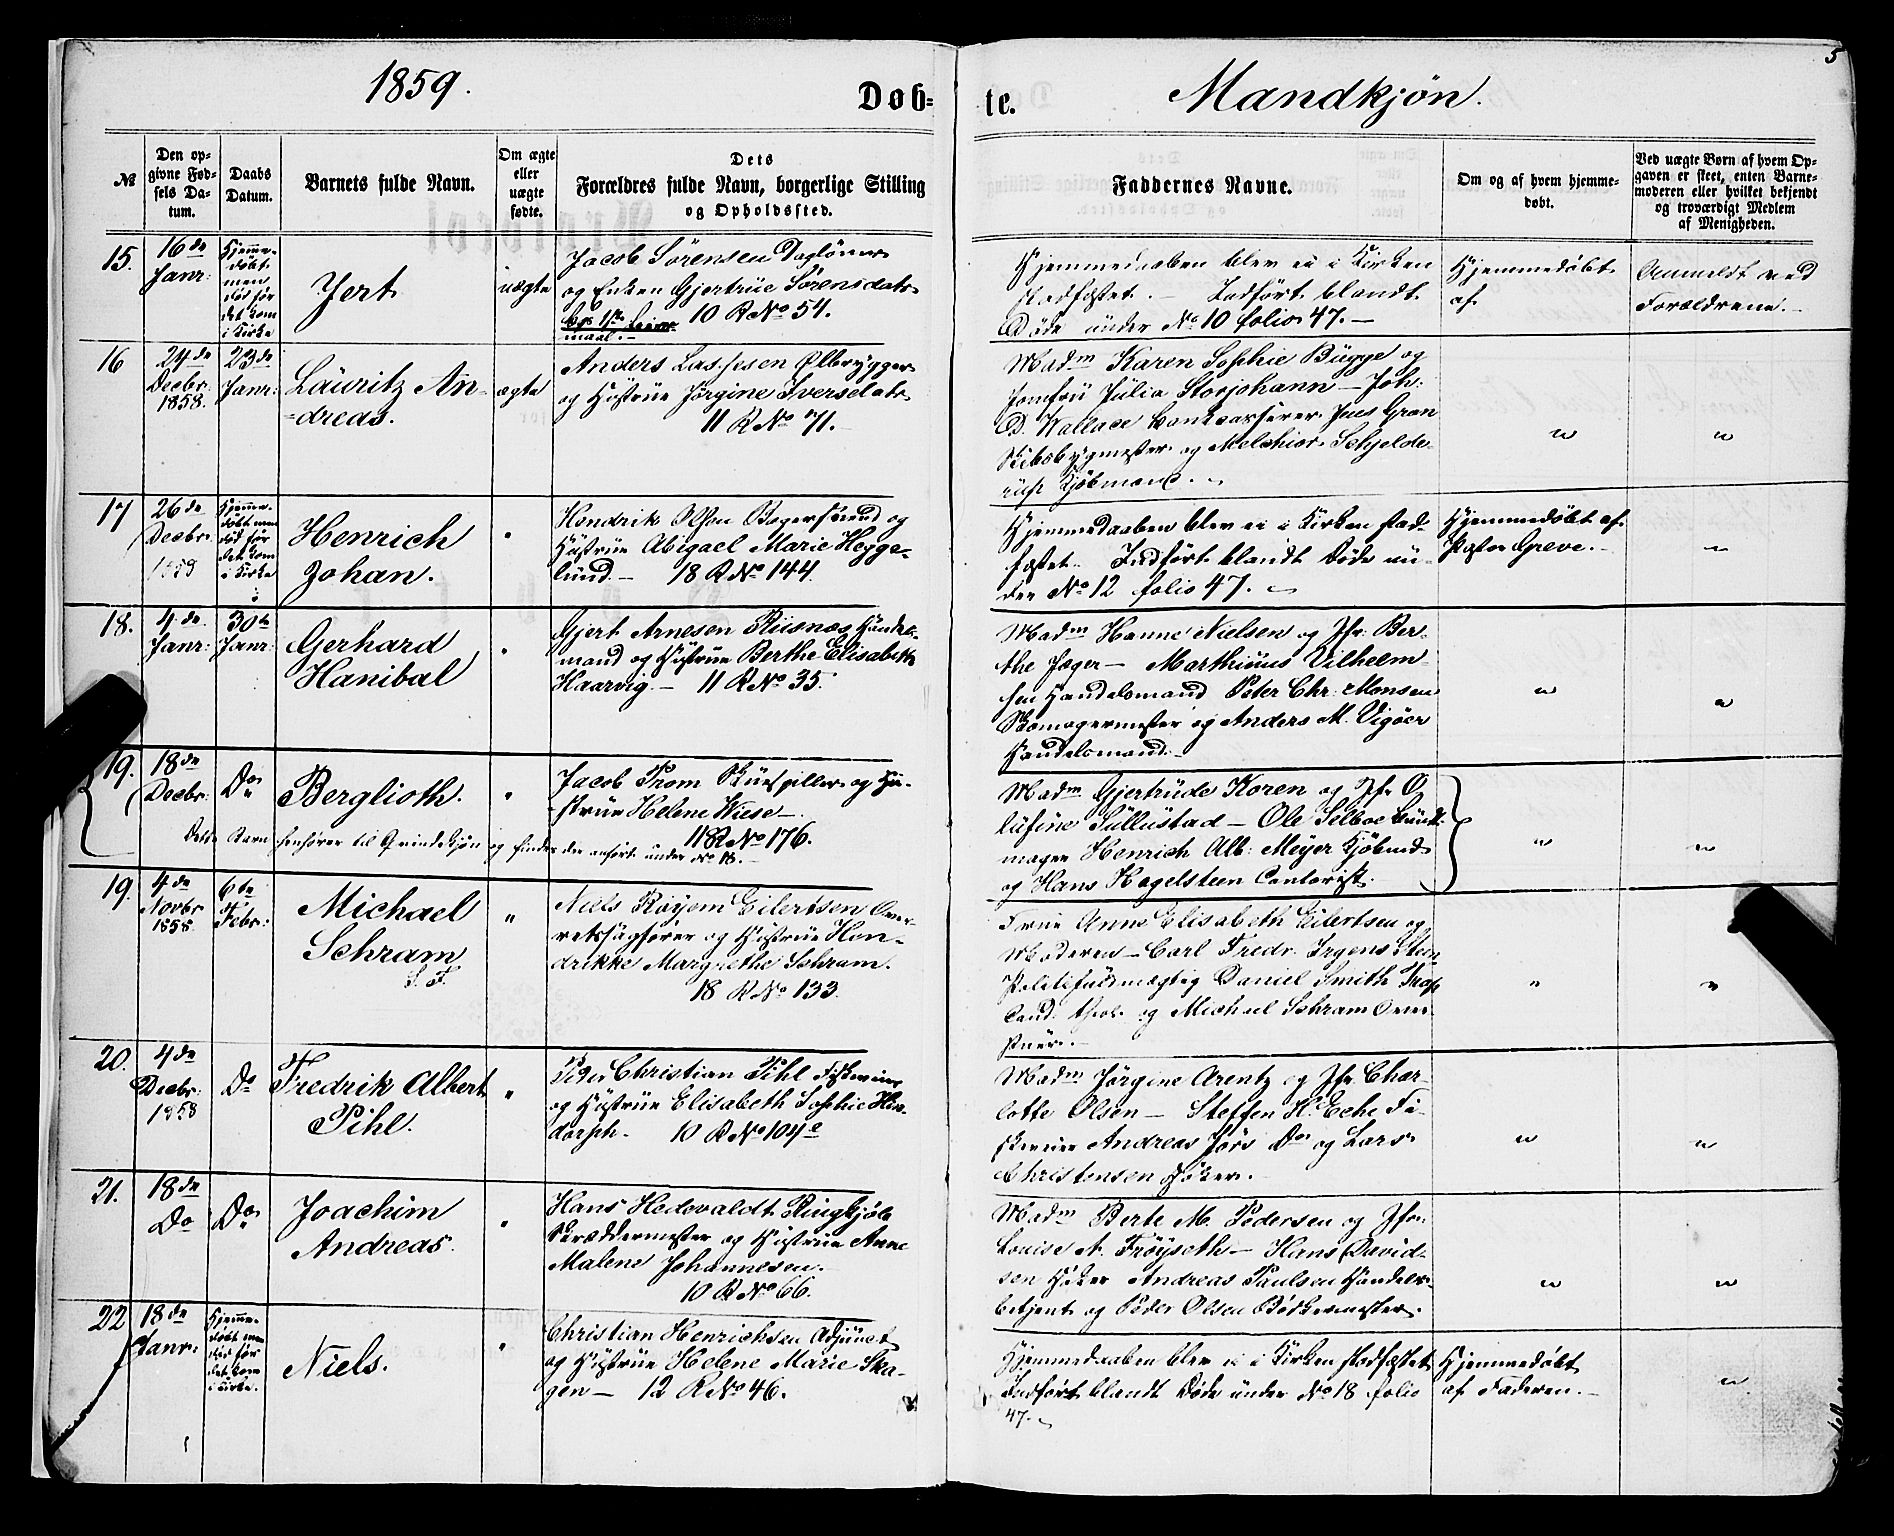 5
1859.
Døb-
te.
Mandkjøn.
№
Den op-
givne Fød-
sels Da-
tum.
Daabs
Datum.
Barnets fulde Navn.
Om ægte
eller
uægte
fødte.
Dets
Forældres fulde Navn, borgerlige Stilling
og Opholdssted.
Faddernes Navne.
Om og af hvem hjemme-
døbt.
Ved uægte Børn af hvem Op-
gaven er skeet, enten Barne-
moderen eller hvilket bekjendt
og troværdigt Medlem
af Menigheden.
15.
16de
Janr:
Hjemme-
døbt
men
død før
det kom
i Kirke
Jert
uægte
Jacob Sörensen Dagløner
og Enken Gjertrüe Sörensdatr
10 R No 54.
Hjemmedaaben blev ei i Kirken
stadfæstet. — Indført blandt
Døde under No 10 folio 47. —
Hjemmedøbt
af
Anmeldt ved
Forældrene. —
16
24de
Decbr.
1858.
23de
Janr:
Lauritz An-
=dreas.
ægte
Anders Lassesen Ølbrygger
og Hustrue Jørgine Iversdatr
11 R No 71.
Madm Karen Sophie Bügge og
Jomfru Julia Storjohann — Joh:
D. Wallace Bankcasserer Jens Gran
Skibsbygmester og Melchior Schjelde-
rup Kjøbmand.
17
26de
Decbr.
Hjemme-
døbt men
død før
det kom
i Kirke
Henrich
Johan.
Hendrik Olsen Bagersvend og
Hustrue Abigael Marie Hegge-
lund. — 18 R No 144.
Hjemmedaaben blev ei i Kirken stad-
fæstet. Indført blandt Døde un-
der No 12 folio 47.
Hjemmedøbt af
Pastor Greve. —
18.
4de
Janr:
30te
Janr:
Gerhard
Hanibal
Gjert Arnesen Riisnæs Handels-
mand og Hustrue Berthe Elisabeth
Haarvig. — 11 R No 35.
Madm Hanne Nielsen og Jfr: Ber-
the Jæger — Marthinus Vilhelm-
sen Handelsmand Peter Chr: Monsen
Skomagermester og Anders M. Vigöer
Handelsmand. —
19.
18de
Decbr:
Do
Berglioth.
Jacob Prom Skuespiller og Hu-
strue Helene Wiese —
118 R No 176.
Dette Barn henhører til Qvindekjøn og findes der anført under No 18. —
Madm Gjertrüde Koren og Jfr O-
lüfine Süllüstad — Ole Selboe Bunt-
mager Henrich Alb: Meyer Kjøbmd
og Hans Hagelsteen Contorist.
19.
4de
Novbr
1858.
6te
Febr:
Michael
Schram
S. F.
Niels Röyem Eilertsen Over-
retssagfører og Hustrue Hen-
drikke Margrethe Schram.
18 R No 133.
Frue Anne Elisabeth Eilertsen og
Moderen — Carl Fredr. Irgens Steen
Politifuldmægtig Daniel Smith Trap
Cand. theol. og Michael Schram
20.
4de
Decbr:
1858
Do
Fredrik Albert
Pihl.
Peder Christian Pihl
og Hustrue Elisabeth Sophie Hen-
dorph. 10 R No 104c
Madm Jörgine Arentz og Jfr. Char-
lotte Olsen — Steffen H. Eche Fi-
skerier Andreas Jörs Do og Lars
Christensen Høker.
21.
18de
Do
Do
Joachim
Andreas.
Hans Hedevaldt Ringkjöb
Skræddermester og Hustrue Anne
Malene Johannesen.
10 R No 66.
Madm Berte M. Pedersen og Jfr:
Louise A. Fröyseth — Hans David-
sen Høker Andreas Paulsen Handels-
betjent og Peder Olsen Bødkermester.
22
18de
Janr:
Hjemme-
døbt men
død før
det kom
i Kirke.
Niels.
Christian Henrichsen Adjunct
og Hustrue Helene Marie Ska-
gen — 12 R No 46.
Hjemmedaaben blev ei i Kirken stadfæstet
Indført blandt Døde under No 18 folio
47.
Hjemmedøbt
af Faderen. —